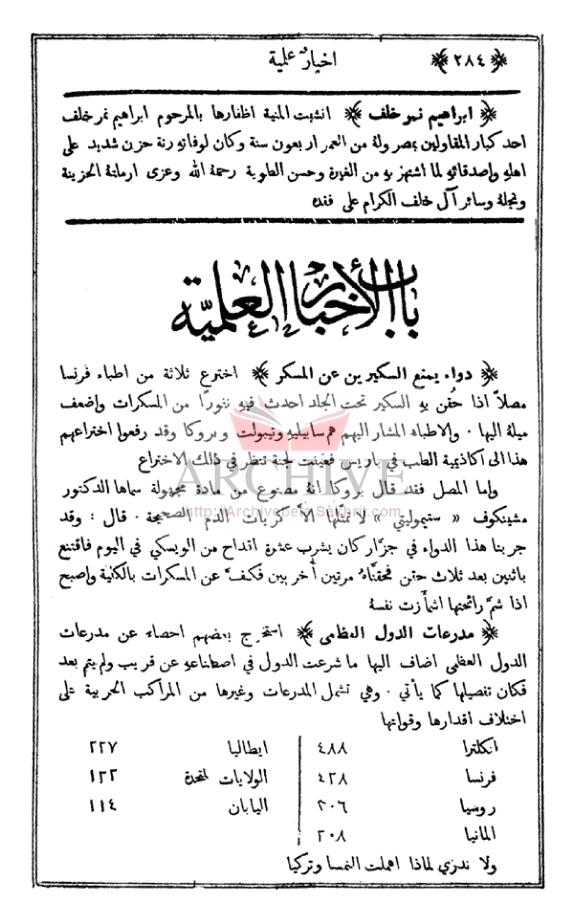 ﴿ ٢٨٤ ﴾ اخبار علمية
﴿ ابراهيم نمر خلف ﴾ انشبت المنية اظفارها بالمرحوم ابراهيم نمر خلف
احد كبار المقاولين بمصر وله من العمر اربعون سنة وكان لوفاته رنة حزن شديد على
اهله واصدقائه لما اشتهر به من الغيرة وحسن الطوية رحمة الله وعزى ارملته الحزينة
ونجله وسائر آل خلف الكرام على فقده
باب الأخبار العلمية
﴿ دواء يمنع السكيرين عن المسكر ﴾ اخترع ثلاثة من اطباء فرنسا
مصلاً اذا حُقن به السكير تحت الجلد احدث فيه نفوراً من المسكرات واضعف
ميله اليها ٠ والاطباء المشار اليهم هم سابيليه وتيبولت وبروكا وقد رفعوا اختراعهم
هذا الى اكاذيمية الطب في باريس فعينت لجنة تنظر في ذلك الاختراع
واما المصل فقد قال بروكا انه مصنوع من مادة مجهولة سماها الدكتور
مشينكوف « ستيموليني » لا تمثلها الا كريات الدم الصحيحة ٠ قال : وقد
جربنا هذا الدواء في جزار كان يشرب عشرة اقداح من الويسكي في اليوم فاقتنع
باثنين بعد ثلاث حقن فحقناه مرتين أخر بين فكفّ عن المسكرات بالكلية واصبح
اذا شمّ رائحتها اشمأزت نفسه
﴿ مدرعات الدول العظمى ﴾ استخرج بعضهم احصاء عن مدرعات
الدول العظمى اضاف اليها ما شرعت الدول في اصطناعه عن قريب ولم يتم بعد
فكان تفصيلها كما يأتي ٠ وهي تشمل المدرعات وغيرها من المراكب الحربية على
اختلاف اقدارها وقواتها
انكلترا ٤٨٨ ايطاليا ٢٢٧
فرنسا ٤٢٨ الولايات المتحدة ١٢٢
روسيا ٢٠٦ اليابان ١١٤
المانيا ٢٠٨
ولا ندري لماذا اهملت النمسا وتركيا
ARCHIVE
http://Archivebeta.Sakhrit.com